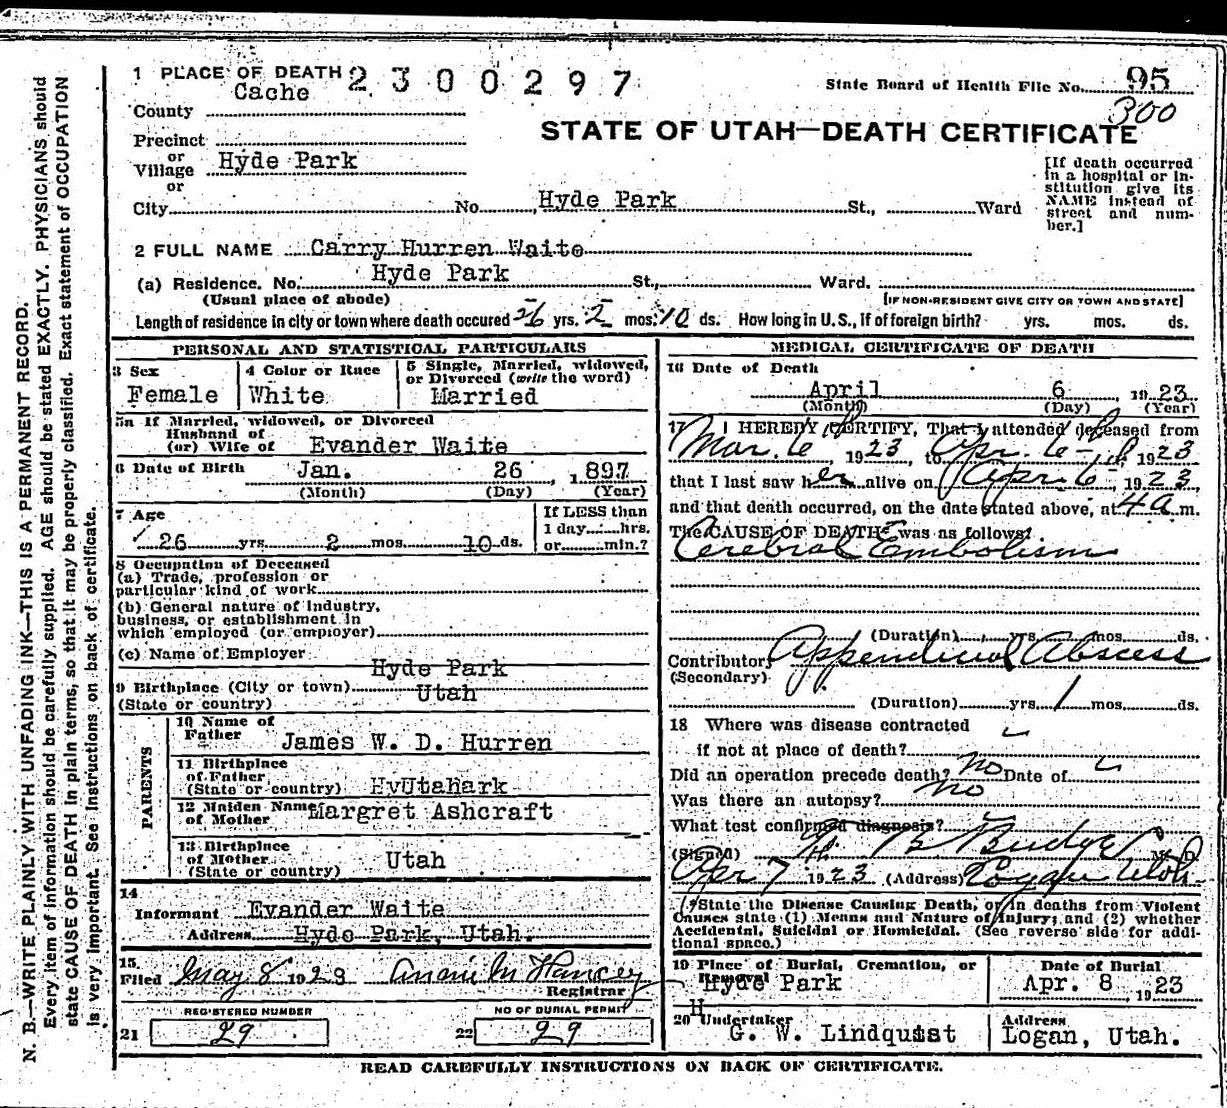 1 PLACE OF DEATH 2300297
State Board of Health File No. 95
300
County Cache
STATE OF UTAH—DEATH CERTIFICATE
Precinct
or
Village Hyde Park
or
City No. Hyde Park St., Ward
[If death occurred
in a hospital or in-
stitution give its
NAME instead of
street and num-
ber.]
2 FULL NAME Carry Hurren Waite
(a) Residence. No. Hyde Park St., Ward.
(Usual place of abode)
[IF NON-RESIDENT GIVE CITY OR TOWN AND STATE]
Length of residence in city or town where death occured 26 yrs. 2 mos. 10 ds. How long in U. S., if of foreign birth? yrs. mos. ds.
PERSONAL AND STATISTICAL PARTICULARS
3 Sex
Female
4 Color or Race
White
5 Single, Married, widowed,
or Divorced (write the word)
Married
5a If Married, widowed, or Divorced
Husband of
(or) Wife of Evander Waite
6 Date of Birth Jan. 26, 1897
(Month) (Day) (Year)
7 Age
26 yrs. 2 mos. 10 ds.
If LESS than
1 day.....hrs.
or.....min.?
8 Occupation of Deceased
(a) Trade, profession or
particular kind of work
(b) General nature of Industry,
business, or establishment in
which employed (or employer)
(c) Name of Employer
Hyde Park
9 Birthplace (City or town) Utah
(State or country)
PARENTS
10 Name of
Father James W. D. Hurren
11 Birthplace
of Father
(State or country) HyUtahark
12 Maiden Name
of Mother Margret Ashcraft
13 Birthplace
of Mother Utah
(State or country)
14
Informant Evander Waite
Address Hyde Park, Utah.
15
Filed May 8 1923 Annie M Hancey
Registrar
REGISTERED NUMBER
21 29
NO OF BURIAL PERMIT
22 29
MEDICAL CERTIFICATE OF DEATH
16 Date of Death
April 6, 1923
(Month) (Day) (Year)
17 I HEREBY CERTIFY, That I attended deceased from
Mar. 6, 1923, to Apr. 6, 1923
that I last saw her alive on Apr. 6, 1923,
and that death occurred, on the date stated above, at 4 a m.
The CAUSE OF DEATH* was as follows:
Cerebral Embolism
(Duration) yrs. mos. ds.
Contributory Appendical Abscess
(Secondary)
(Duration) yrs. 1 mos. ds.
18 Where was disease contracted
if not at place of death?
Did an operation precede death? no Date of
Was there an autopsy? no
What test confirmed diagnosis?
(Signed) B. Budge M. D.
Apr 7 1923 (Address) Logan Utah
(*State the Disease Causing Death, or in deaths from Violent
Causes state (1) Means and Nature of Injury; and (2) whether
Accidental, Suicidal or Homicidal. (See reverse side for addi-
tional space.)
19 Place of Burial, Cremation, or
Removal Hyde Park
Date of Burial
Apr. 8, 1923
H
20 Undertaker
G. W. Lindquist
Address
Logan, Utah.
READ CAREFULLY INSTRUCTIONS ON BACK OF CERTIFICATE.
N. B.—WRITE PLAINLY WITH UNFADING INK—THIS IS A PERMANENT RECORD.
Every item of information should be carefully supplied. AGE should be stated EXACTLY. PHYSICIANS should
state CAUSE OF DEATH in plain terms, so that it may be properly classified. Exact statement of OCCUPATION
is very important. See instructions on back of certificate.